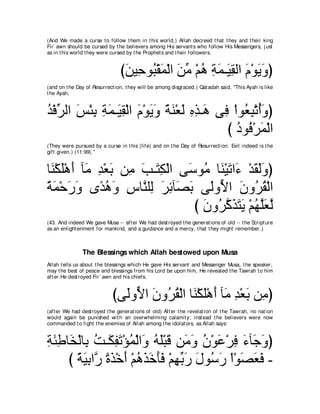 (And We made a curse to follow them in this world,) Allah decreed that they and their king
Fir`awn should be cursed by the believers among His servants who follow His Messengers, just
as in this world they were cursed by the Prophets and their followers.
(وَيَوْمَ الْقِيَـمَةِ هُمْ مِّنَ الْمَقْبُوحِينَ)
(and on the Day of Resurrection, they will be among disgraced.) Qatadah said, "This Ayah is like
the Ayah,
(وَأُتْبِعُواْ فِى هَـذِهِ لَعْنَةً وَيَوْمَ الْقِيَـمَةِ بِئْسَ الرِّفْدُ
الْمَرْفُودُ )
(They were pursued by a curse in this (life) and on the Day of Resurrection. Evil indeed is the
gift given.) (11:99)."
(وَلَقَدْ ءَاتَيْنَا مُوسَى الْكِتَـبَ مِن بَعْدِ مَآ أَهْلَكْنَا
الْقُرُونَ الاٍّولَى بَصَآئِرَ لِلنَّاسِ وَهُدًى وَرَحْمَةً
لَّعَلَّهُمْ يَتَذَكَّرُونَ )
(43. And indeed We gave Musa -- after We had destroyed the generations of old -- the Scripture
as an enlightenment for mankind, and a guidance and a mercy, that they might remember.)
The Blessings which Allah bestowed upon Musa
Allah tells us about the blessings which He gave His servant and Messenger Musa, the speaker,
may the best of peace and blessings from his Lord be upon him, He revealed the Tawrah to him
after He destroyed Fir`awn and his chiefs.
(مِن بَعْدِ مَآ أَهْلَكْنَا الْقُرُونَ الاٍّولَى)
(after We had destroyed the generations of old) After the revelation of the Tawrah, no nation
would again be punished with an overwhelming calamity; instead the believers were now
commanded to fight the enemies of Allah among the idolators, as Allah says:
(وَجَآءَ فِرْعَوْنُ وَمَن قَبْلَهُ وَالْمُؤْتَفِكَـتُ بِالْخَاطِئَةِ
- فَعَصَوْاْ رَسُولَ رَبِّهِمْ فَأَخَذَهُمْ أَخْذَةً رَّابِيَةً )